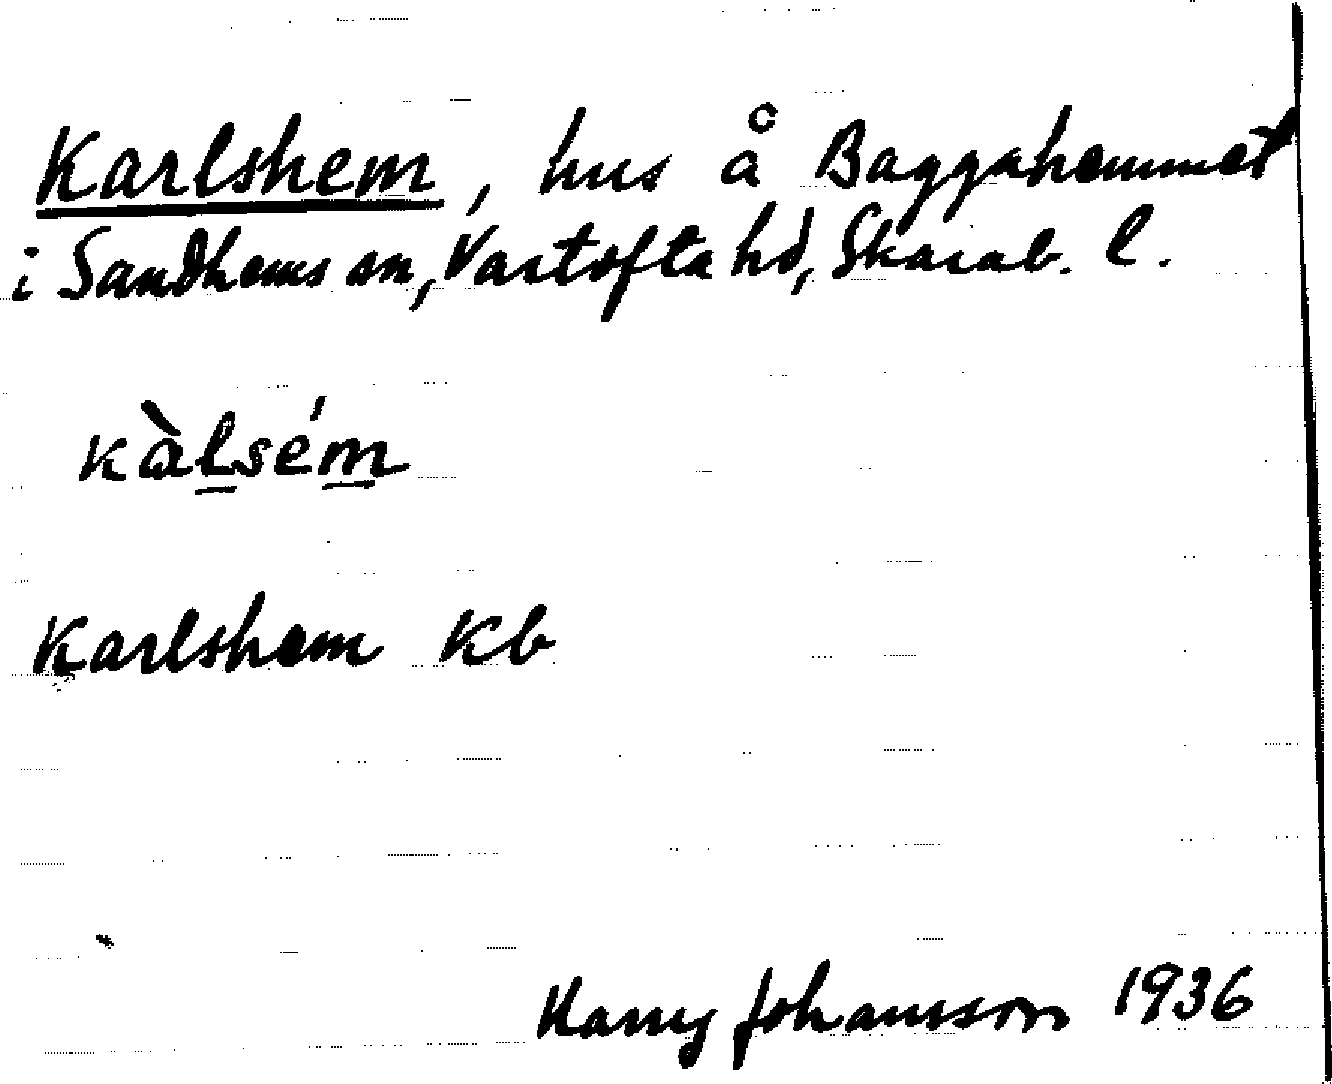 Karlshem, hus å Baggahemmet
i Sandhems sn, Vartofta hd, Skarab. l.
kàlsém
Karlshem Kb
Harry Johansson 1936